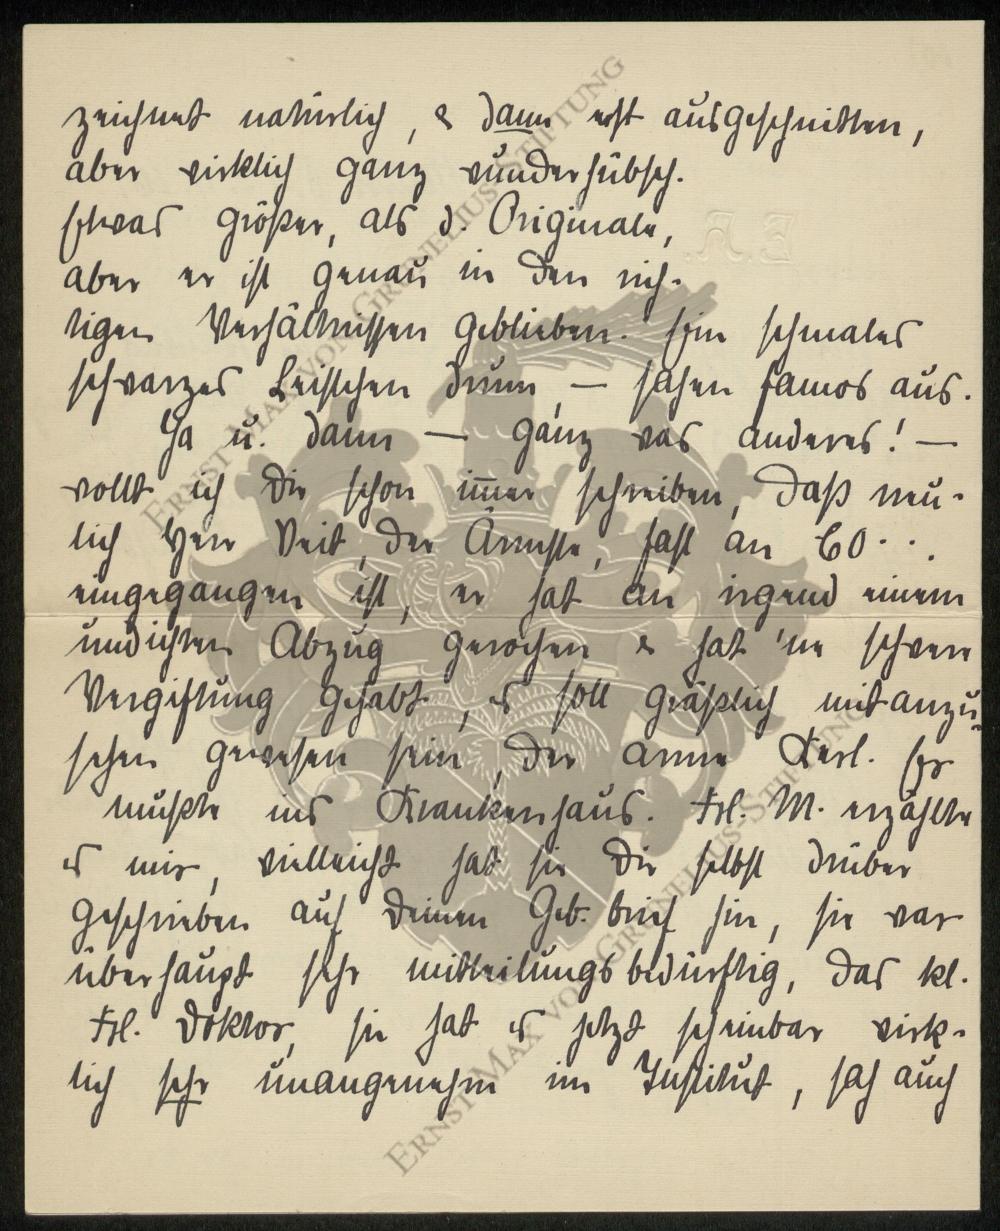 zeichnet natürlich, & dann erst ausgeschnitten,
aber wirklich ganz wunderhübsch.
Etwas größer, als d. Originale,
aber er ist genau in den rich-
tigen Verhältnissen geblieben. Ein schmales
schwarzes Leistchen drum — sahen famos aus.
Ja u. dann — ganz was anderes! —
wollt ich Dir schon im̅er schreiben, daß neu-
lich Herr Veit, der Ärmste, fast an CO...
eingegangen ist, er hat an irgend einem
undichten Abzug gerochen & hat 'ne schwere
Vergiftung gehabt, es soll gräßlich mitanzu-
sehen gewesen sein, der arme Kerl. Er
mußte ins Krankenhaus. Frl. M. erzählte
es mir, vielleicht hat sie Dir selbst drüber
geschrieben auf Deinen Geb. brief hin, sie war
überhaupt sehr mitteilungsbedürftig, das kl.
Frl. Doktor, sie hat es jetzt scheinbar wirk-
lich sehr unangenehm im Institut, sah auch
E.R.
Ernst-Max von Grunelius-Stiftung
Ernst-Max von Grunelius-Stiftung